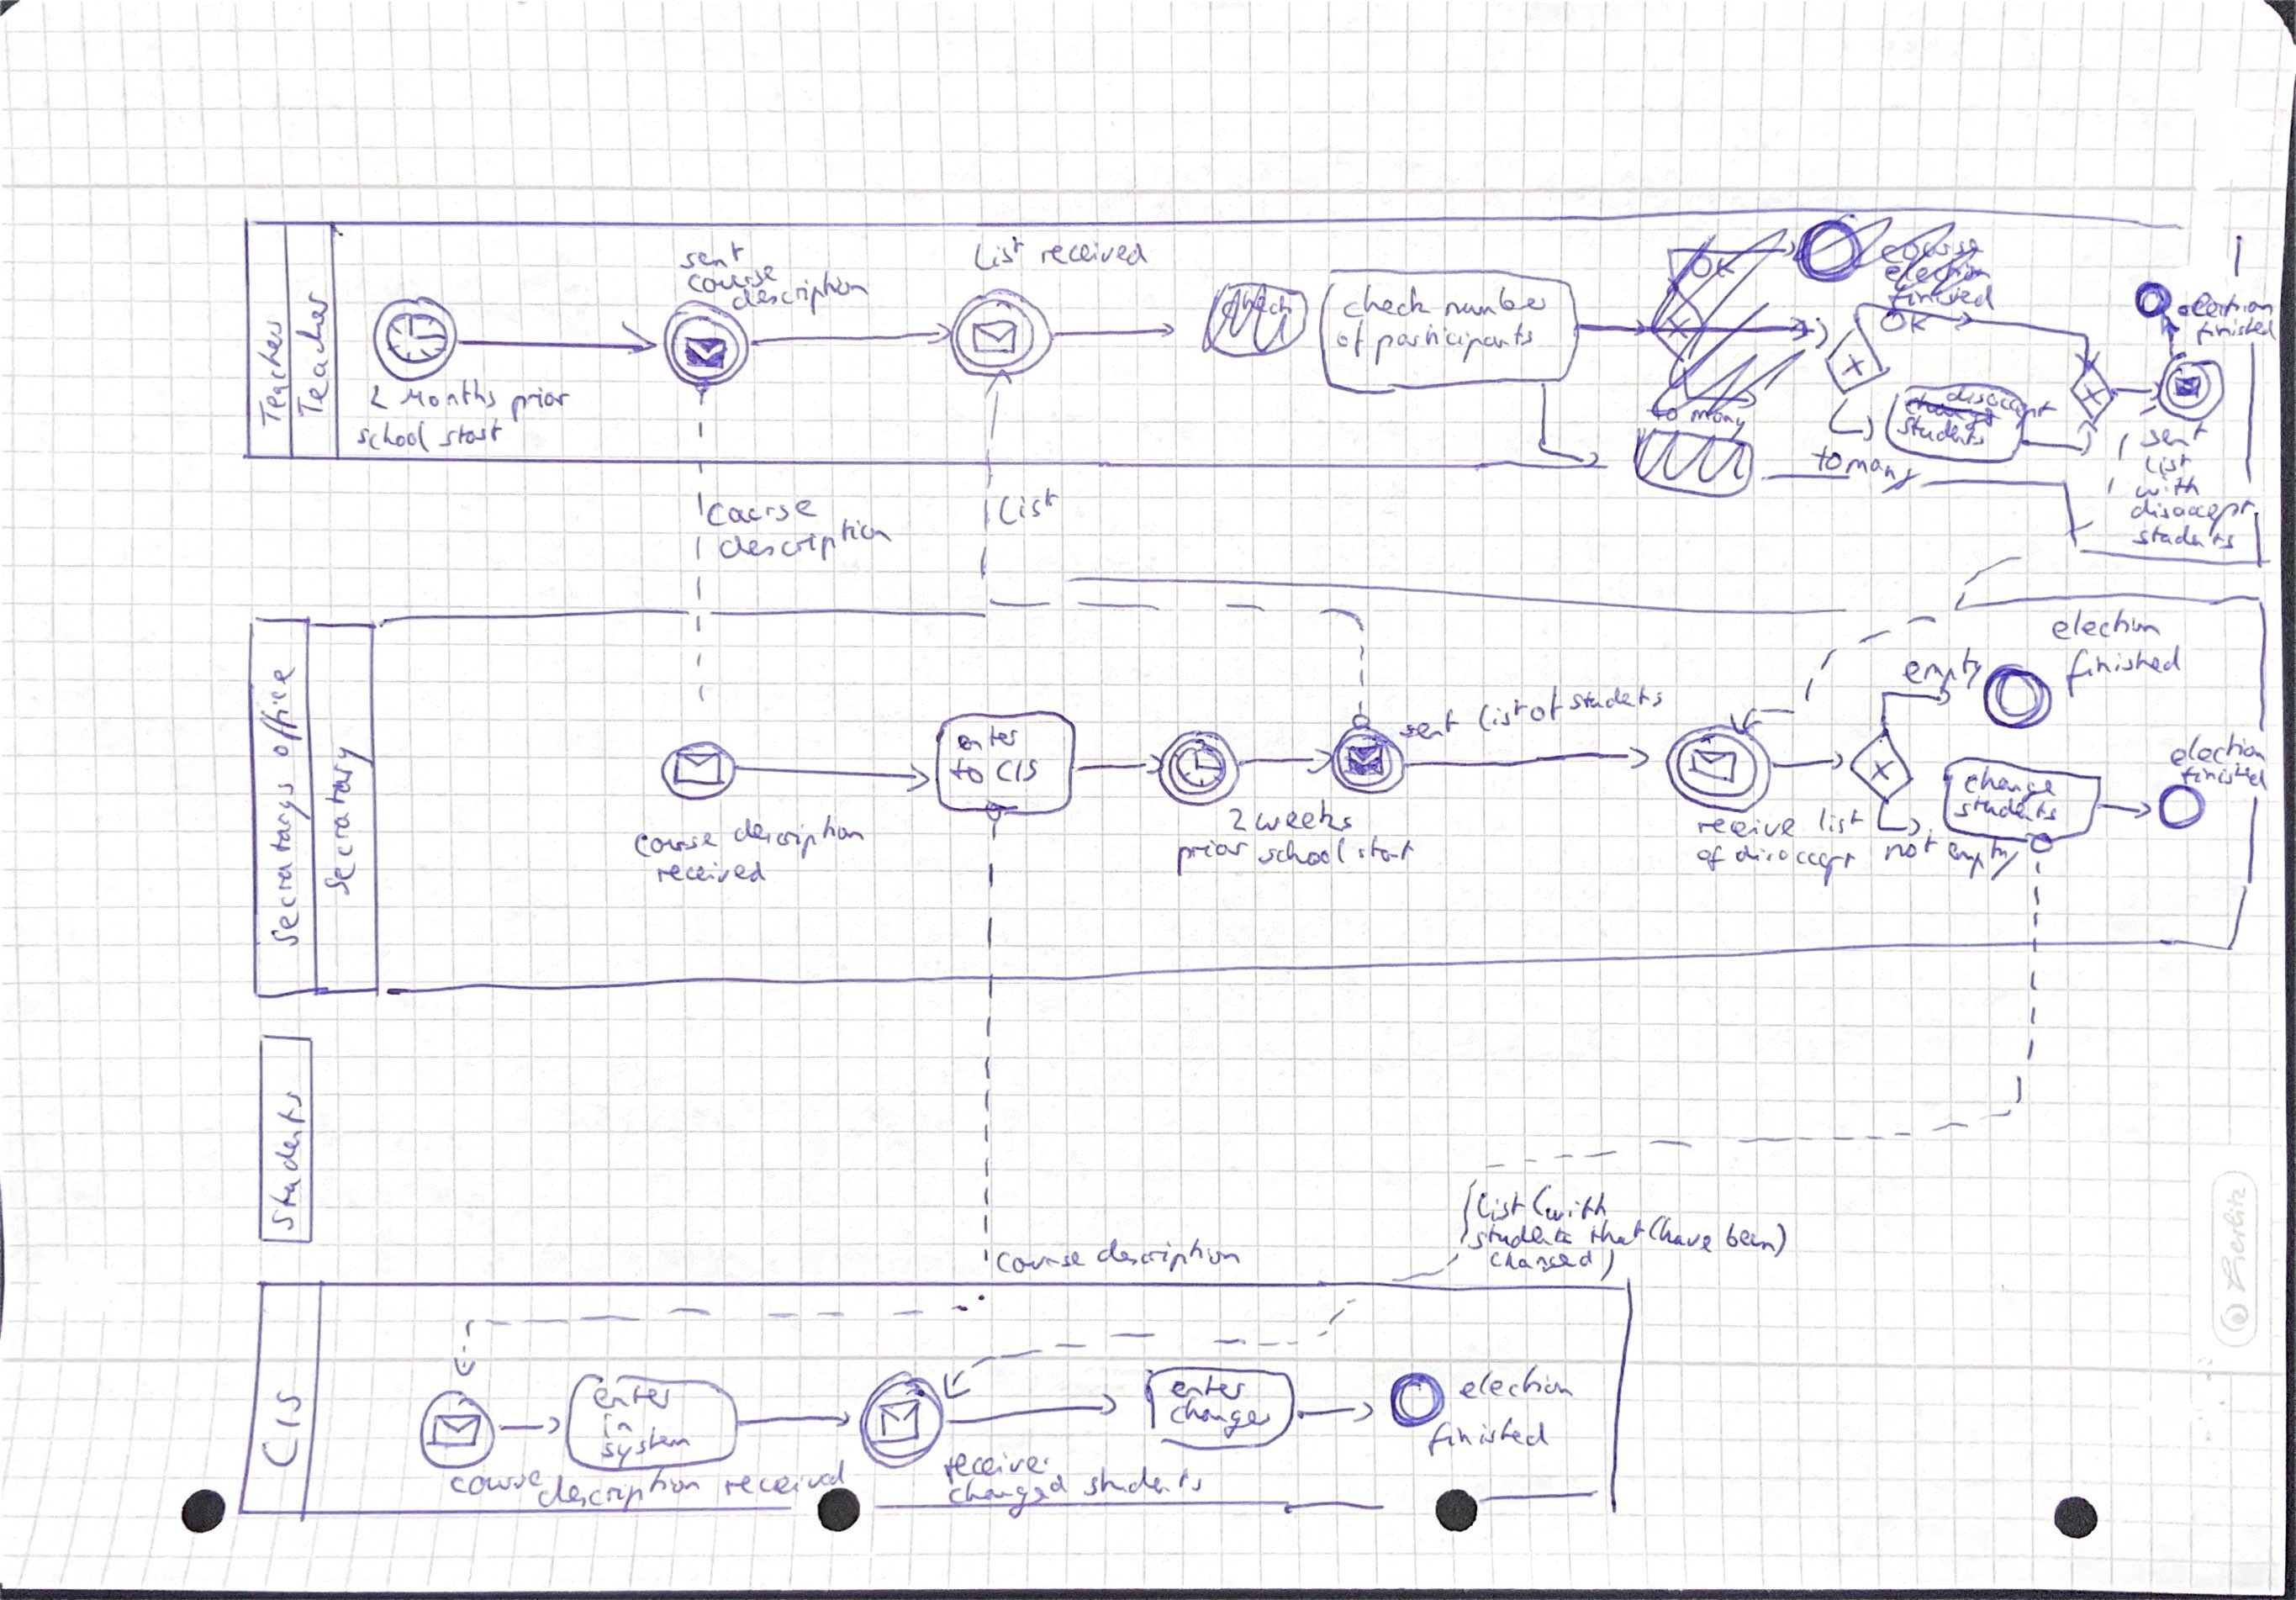 Teacher
Teacher
2 Months prior
school start
sent
course
description
List received
check
check number
of participants
OK
course
election
finished
to many
OK
to many
disaccept
students
election
finished
sent
list
with
disaccept
students
Course
description
List
Secretarys office
Secretary
course description
received
enter
to CIS
2 weeks
prior school start
sent list of students
receive list
of disaccept
empty
not empty
election
finished
change
students
election
finished
Students
course description
List (with
students that (have been)
changed)
CIS
course
description received
enter
in
system
receive
changed students
enter
changes
election
finished